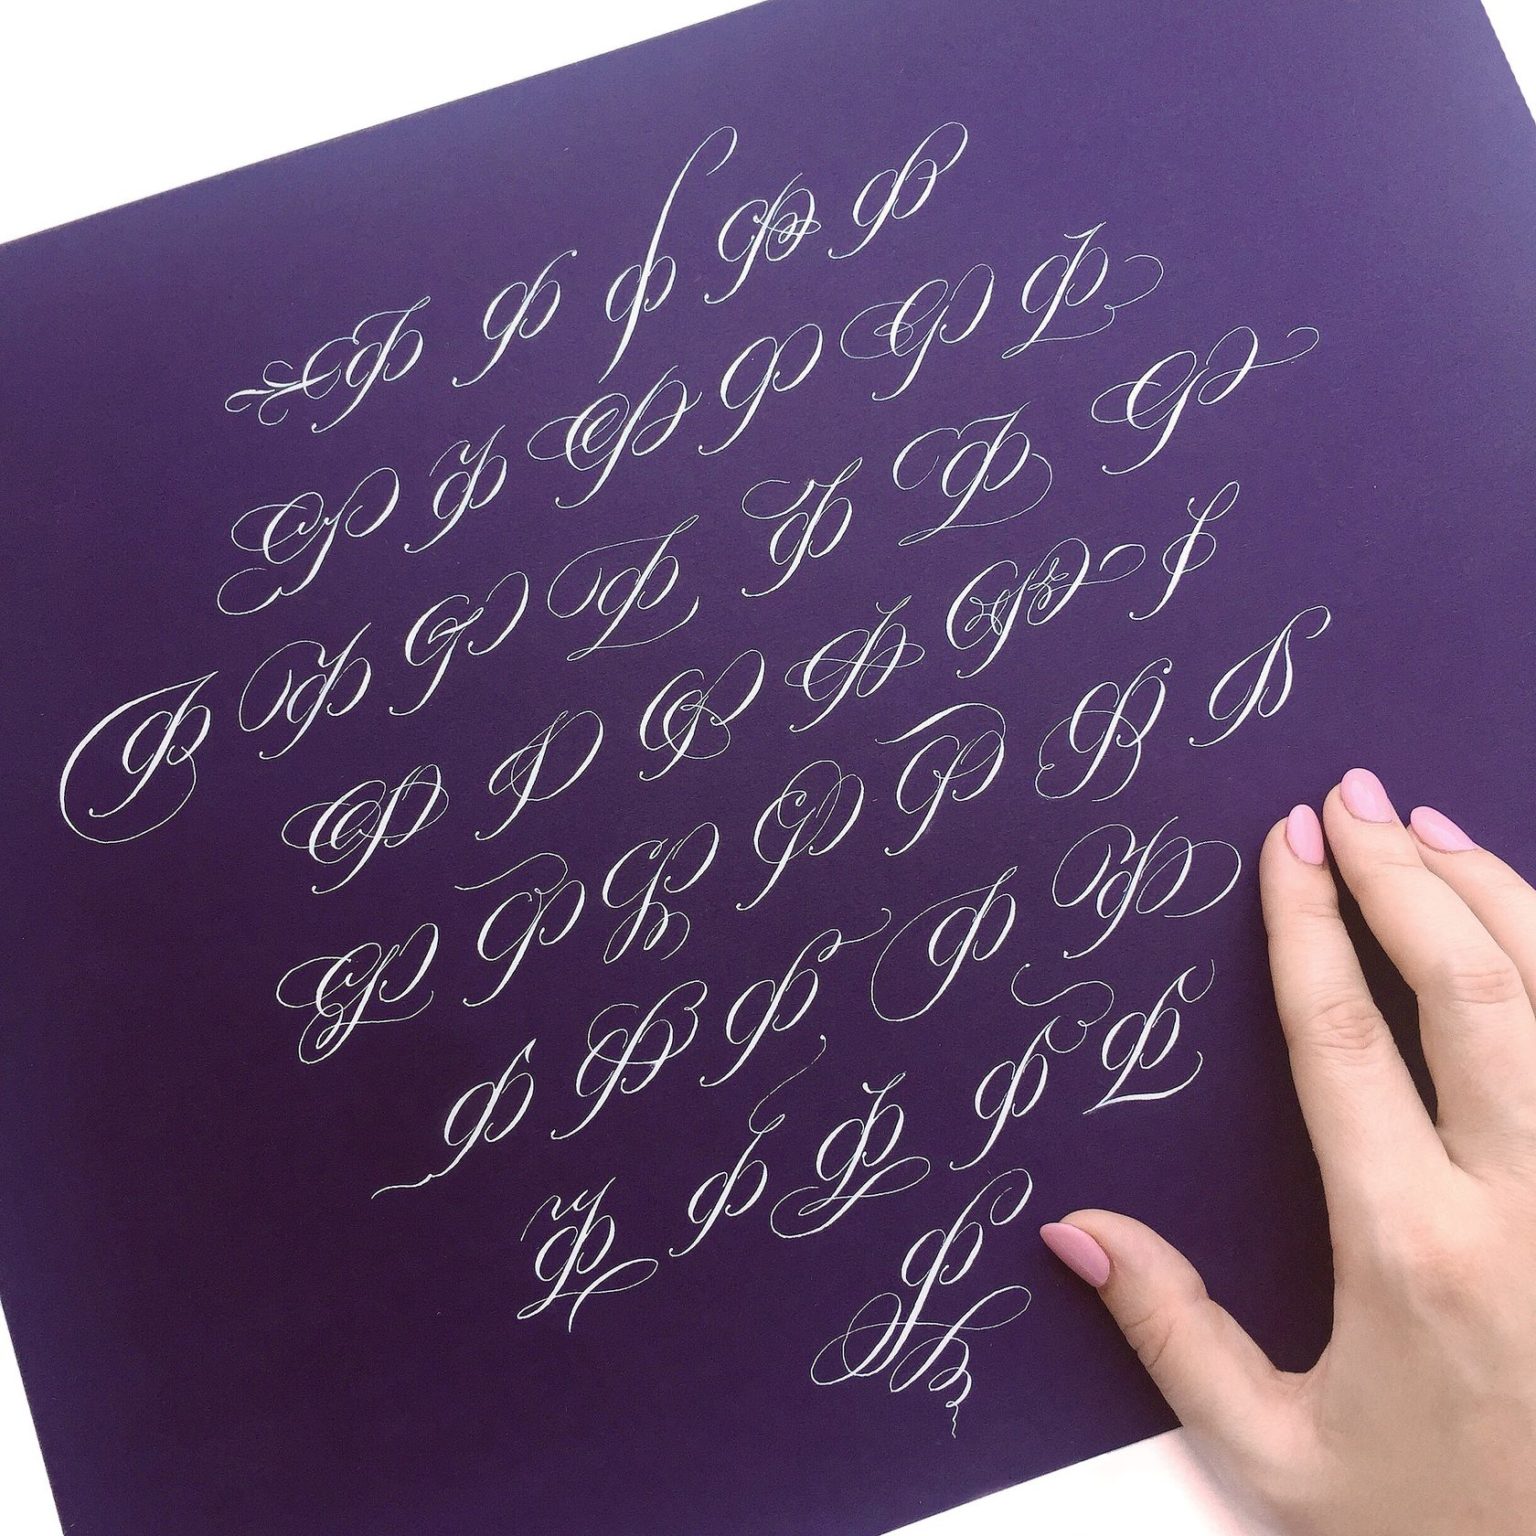 Ф Ф Ф Ф Ф
Ф Ф Ф Ф Ф Ф
Ф Ф Ф Ф Ф Ф Ф
Ф Ф Ф Ф Ф Ф
Ф Ф Ф Ф Ф Ф Ф
Ф Ф Ф Ф Ф
Ф Ф Ф Ф Ф
Ф